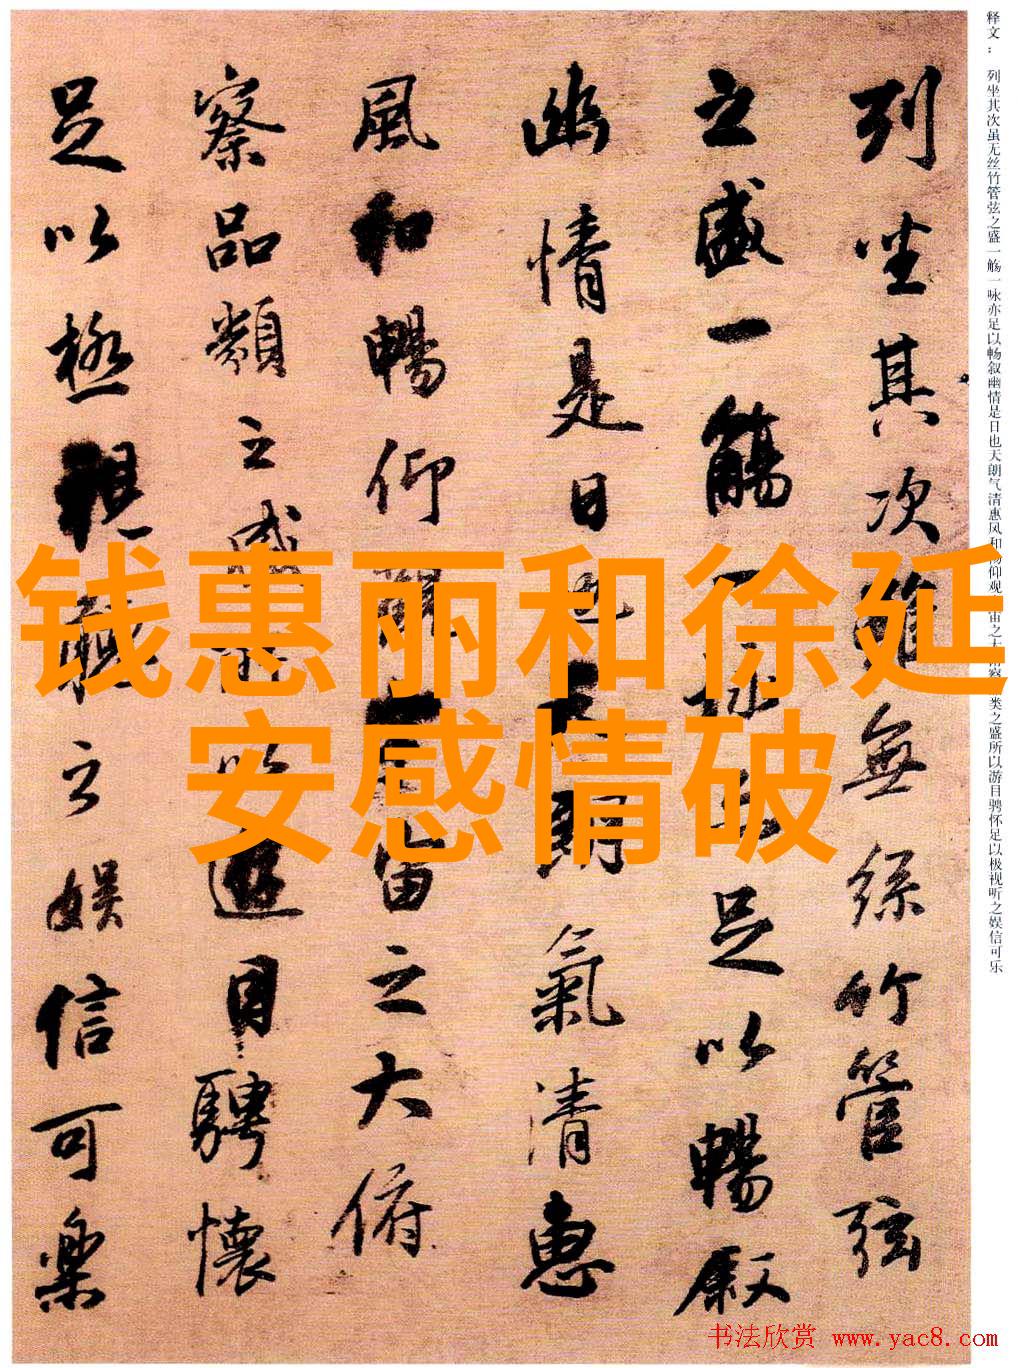 释文： 列坐其次虽无丝竹管弦之盛一觞一咏亦足以畅叙幽情是日也天朗气清惠风和畅仰观宙之大察类之盛所以游目骋怀足以极视听之娱信可乐
列坐其次雖無絲竹管弦
之盛一觴一詠亦足以暢叙
幽情是日也天朗氣清惠
風和暢仰觀宙之大俯
察品類之盛所以遊目騁懷
足以極視聽之娱信可樂
钱惠丽和徐延
安感情破
书法欣赏 www.yac8.com